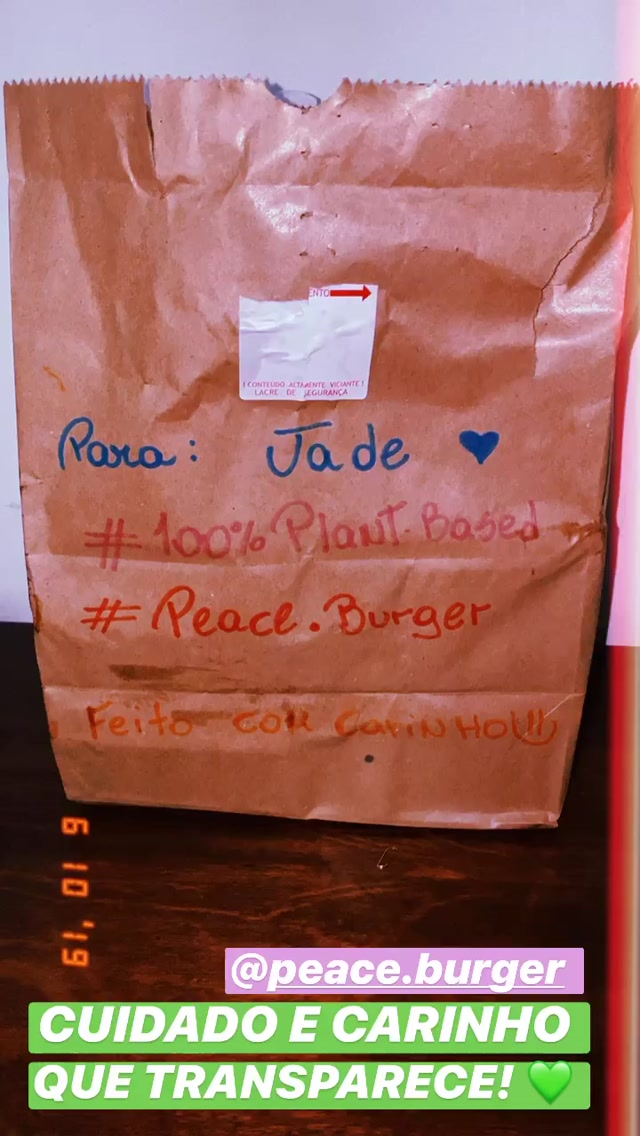 ENTO
! CONTEÚDO ALTAMENTE VICIANTE !
LACRE DE SEGURANÇA
Para: Jade ♥
#100% Plant-Based
#Peace.Burger
Feito com CariNHO!!!
6 10 '19
@peace.burger
CUIDADO E CARINHO
QUE TRANSPARECE! 💚